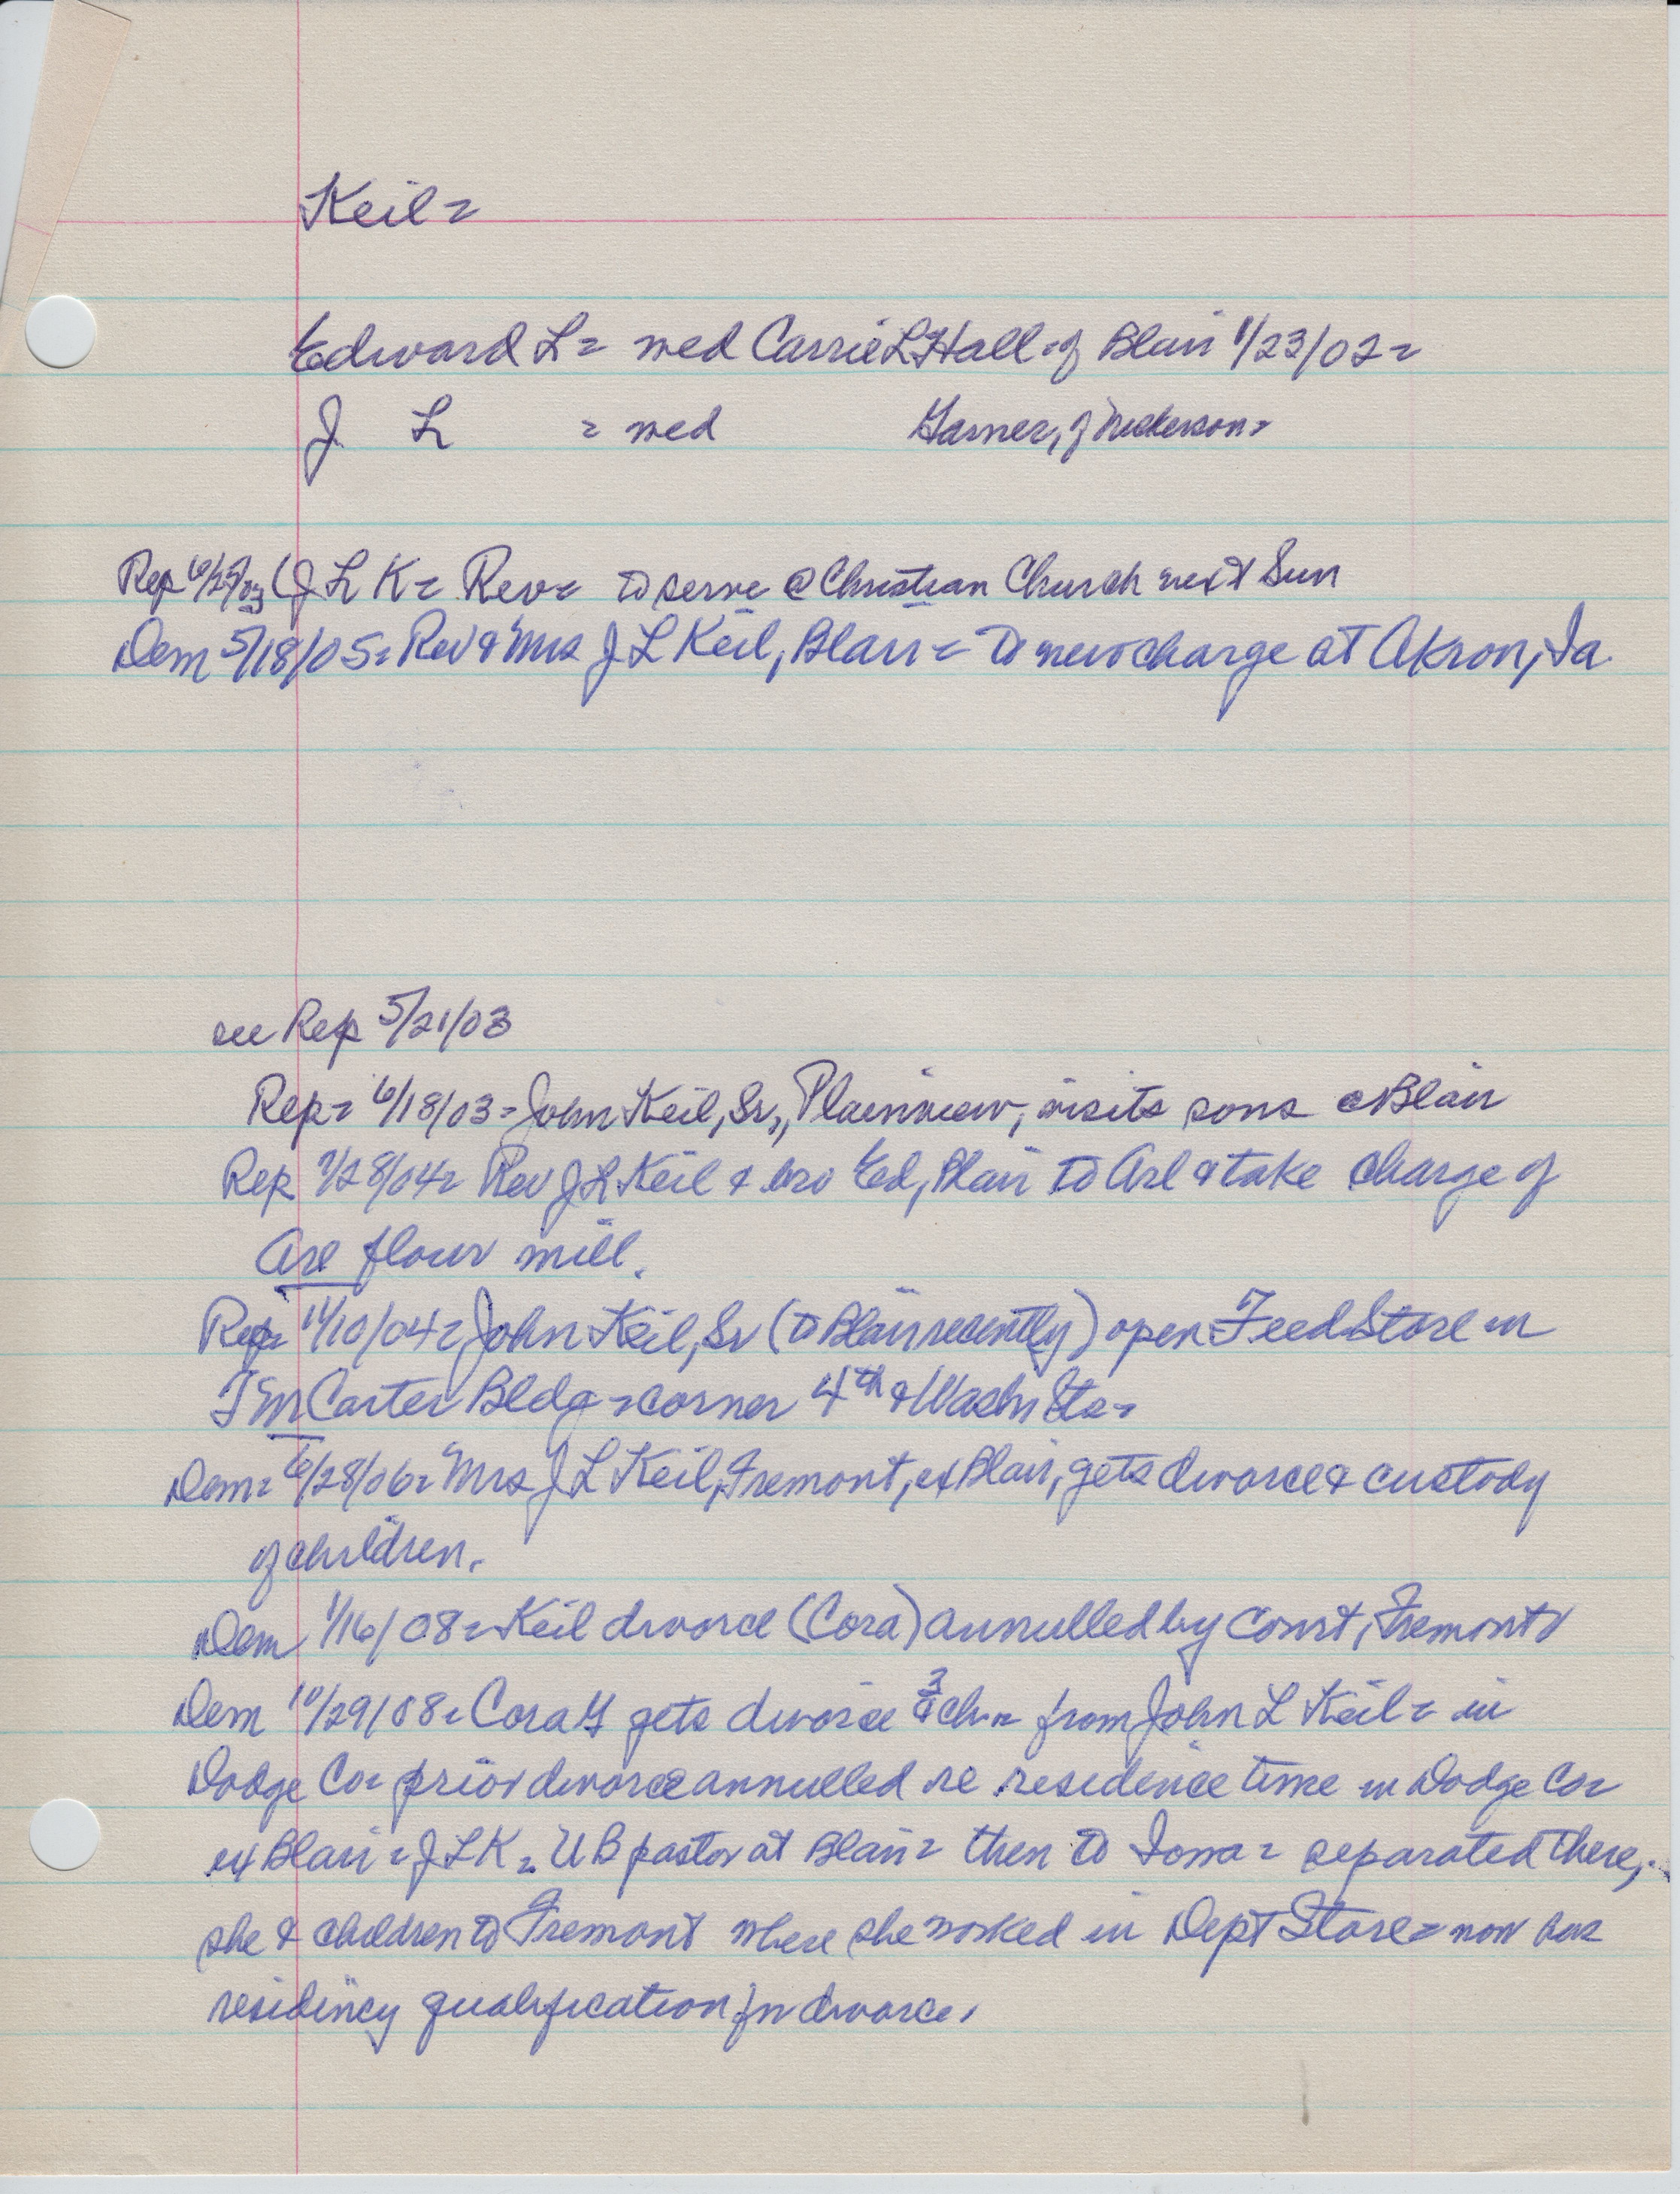 Keil =
Edward L = wed Carrie L Hall of Blair 1/23/02 =
J L = wed Garner, of Nickerson =
Rep 6/25/03 (J L K = Rev = to serve @ Christian Church next Sun
Dem 5/18/05 = Rev & Mrs J L Keil, Blair = to new charge at Akron, Ia.
see Rep 5/21/03
Rep = 6/18/03 = John Keil, Sr., Plainview, visits sons @ Blair
Rep 7/28/04 = Rev J L Keil & bro Ed, Blair to Arl & take charge of
Arl flour mill.
Rep = 11/10/04 = John Keil, Sr (to Blair recently) open Feed Store in
T M Carter Bldg = corner 4th & Washn Sts =
Dem = 6/28/06 = Mrs J L Keil, Fremont, ex Blair, gets divorce & custody
of children.
Dem 1/16/08 = Keil divorce (Cora) annulled by Court, Fremont
Dem 10/29/08 = Cora G gets divorce & 3 chn from John L Keil = in
Dodge Co = prior divorce annulled re residence time in Dodge Co =
ex Blair = J L K = U B pastor at Blair = then to Iowa = separated there,
she & children to Fremont where she worked in Dept Store = now has
residency qualification for divorce.